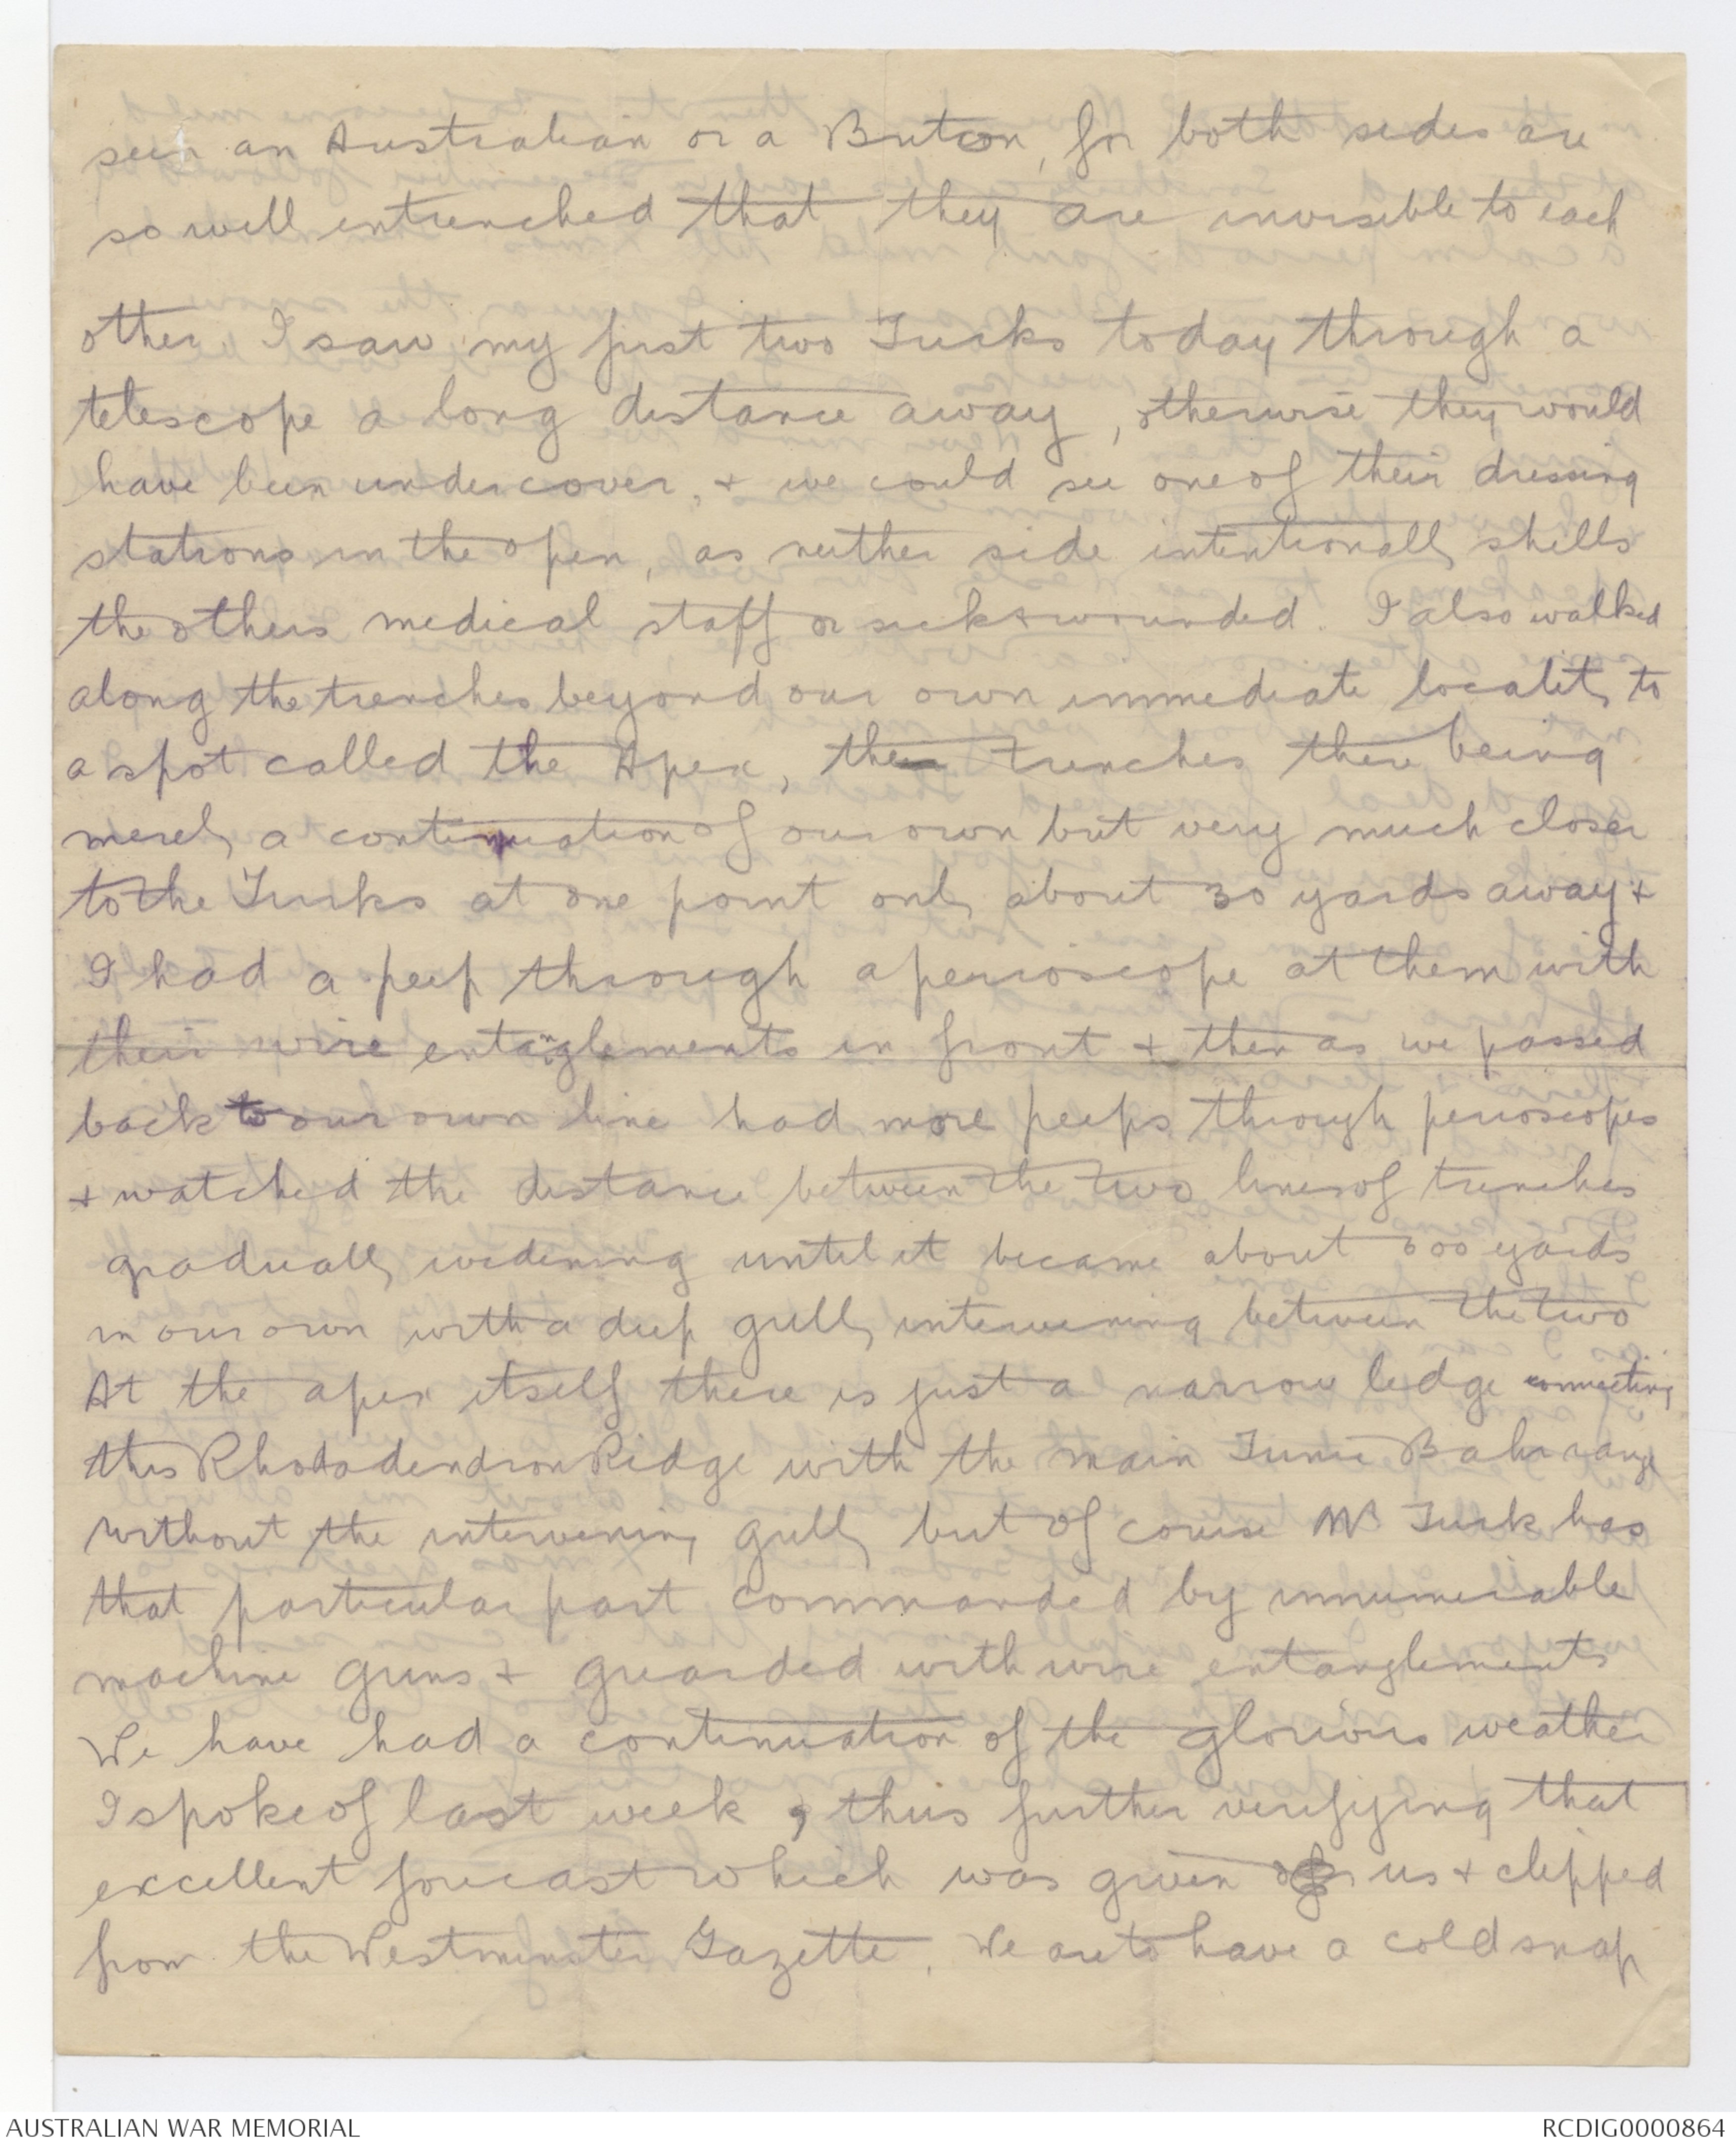 seen an Australian or a Briton, for both sides are
so well entrenched that they are invisible to each
other. I saw my first two Turks today through a
telescope a long distance away, otherwise they would
have been undercover, + we could see one of their dressing
stations in the open, as neither side intentionally shells
the others medical staff or sick + wounded. I also walked
along the trenches beyond our own immediate locality to
a spot called the Apex, the trenches there being
merely a continuation of our own but very much closer
to the Turks at one point only about 30 yards away +
I had a peep through a perioscope at them with
their wire entanglements in front + then as we passed
back to our own line had more peeps through perioscopes
+ watched the distance between the two lines of trenches
gradually widening until it became about 600 yards
in our own with a deep gully intervening between the two
At the apex itself there is just a narrow ledge connecting
this Rhododendron Ridge with the main Bahr range
without the intervening gully but of course Mr Turk has
that particular part commanded by innumerable
machine guns + guarded with wire entanglements
We have had a continuation of the glorious weather
I spoke of last week, thus further verifying that
excellent forecast which was given us + clipped
from the Westminster Gazette. We are to have a cold snap
AUSTRALIAN WAR MEMORIAL
RCDIG0000864